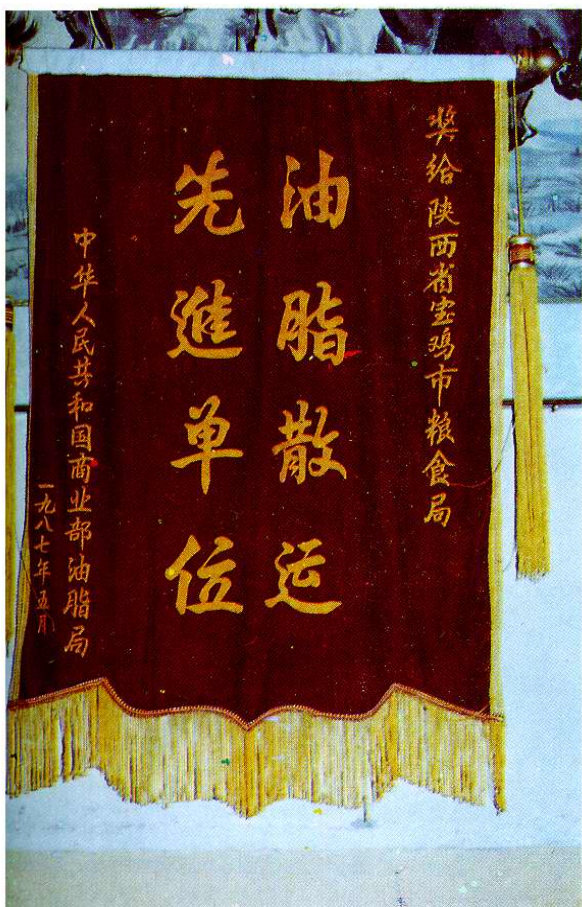 奖给陕西省宝鸡市粮食局
油脂散运
先進单位
中华人民共和国商业部油脂局
一九八七年五月